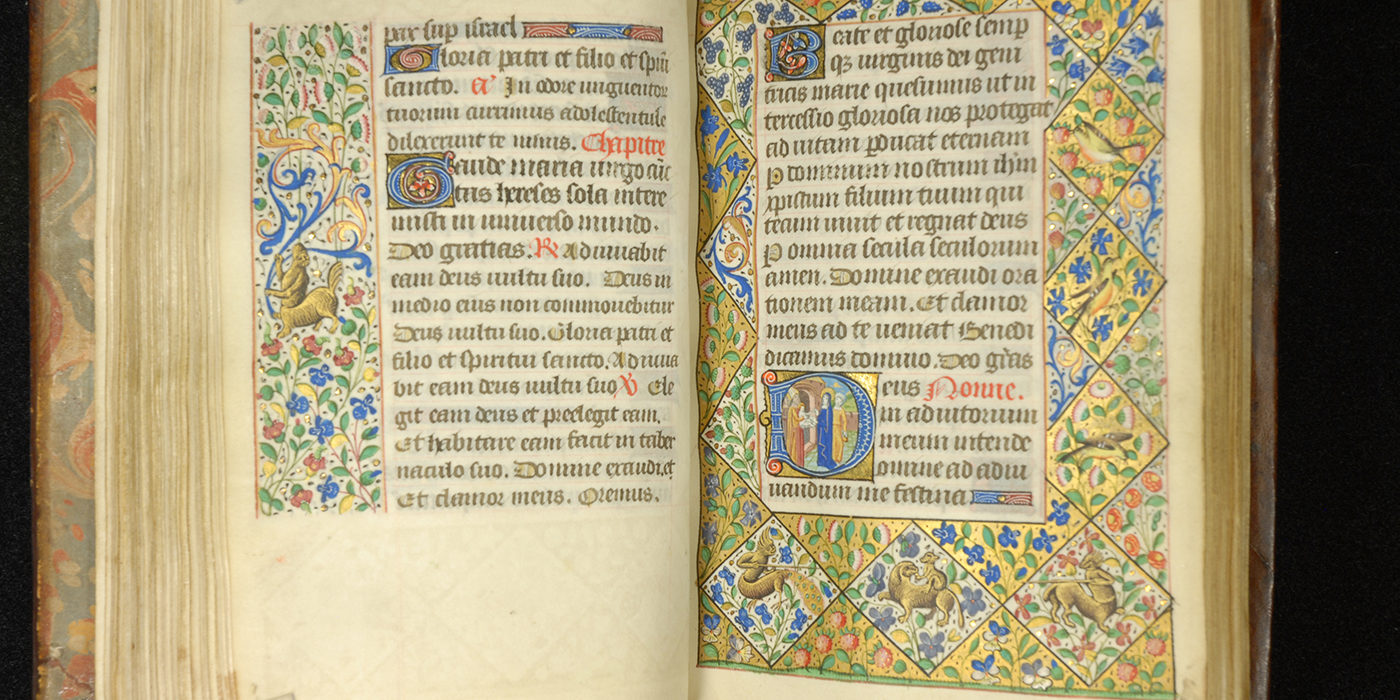 pax sup israel
Gloria patri et filio et spiu
sancto. a In odore unguentor
tuorum currimus adolescentule
dilexerunt te nimis. Chapitre
Gaude maria uirgo cuc
tas hereses sola intere
misti in uniuerso mundo.
Deo gratias. R Adiuuabit
eam deus uultu suo. Deus in
medio eius non commouebitur
Deus uultu suo. Gloria patri et
filio et spiritui sancto. Adiuua
bit eam deus uultu suo V Ele
git eam deus et preelegit eam.
Et habitare eam facit in taber
naculo suo. Domine exaudi. et
Et clamor meus. Oremus.
Beate et gloriose semp
q3 uirginis dei geni
tricis marie quesumus ut in
tercessio gloriosa nos protegat
ad uitam pducat eternam
p dominum nostrum ihm
xpistum filium tuum qui
tecum uiuit et regnat deus
P omnia secula seculorum
amen. Domine exaudi ora
tionem meam. Et clamor
meus ad te ueniat Benedi
dicamus domino. Deo gras
Deus Nonne.
in adiutorium
meum intende
Domine ad adiu
uandum me festina